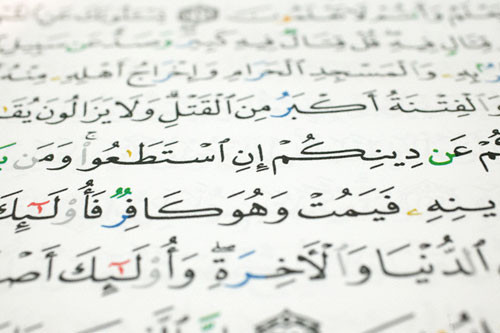 وَأَنتُمْ لَا تَعْلَمُونَ
قِتَالٍ فِيهِ قُلْ قِتَالٌ فِيهِ كَبِيرٌ وَصَدٌّ عَن سَبِيلِ
بِهِۦ وَٱلْمَسْجِدِ ٱلْحَرَامِ وَإِخْرَاجُ أَهْلِهِۦ مِنْهُ
وَٱلْفِتْنَةُ أَكْبَرُ مِنَ ٱلْقَتْلِ ۗ وَلَا يَزَالُونَ يُقَـٰ
كُمْ عَن دِينِكُمْ إِنِ ٱسْتَطَـٰعُوا۟ ۚ وَمَن يَـ
ـينِهِۦ فَيَمُتْ وَهُوَ كَافِرٌ فَأُو۟لَـٰٓئِكَ
ٱلدُّنْيَا وَٱلْـَٔاخِرَةِ ۖ وَأُو۟لَـٰٓئِكَ أَصْـ